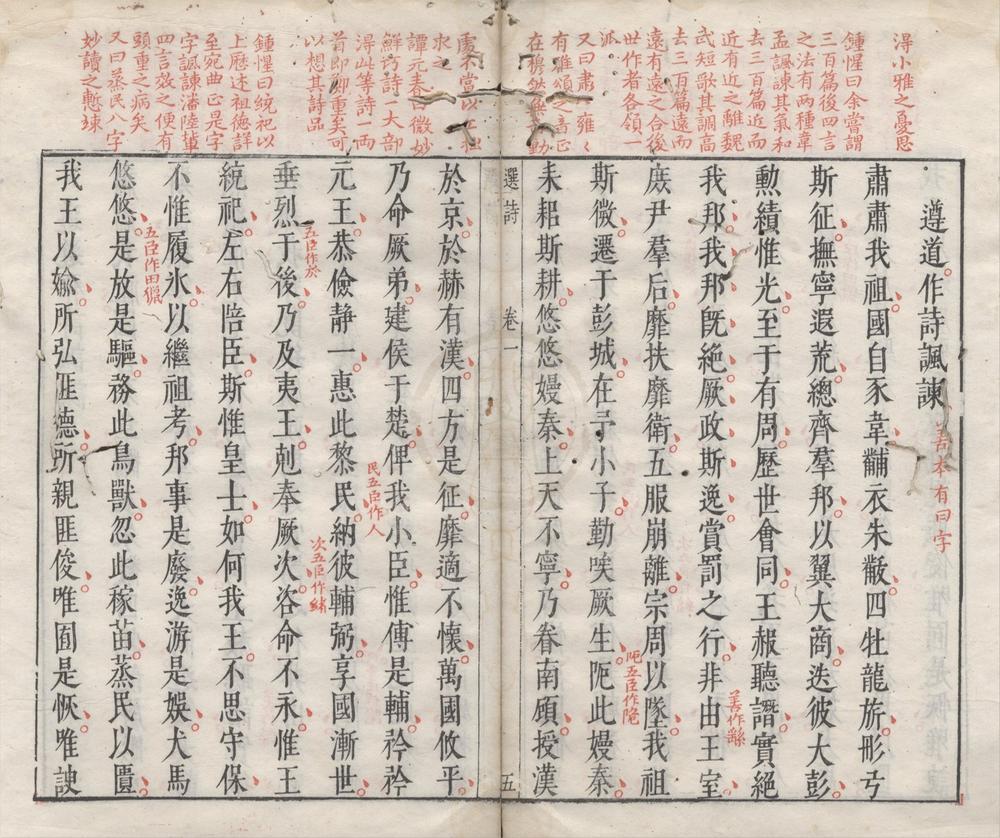 淂小雅之憂思
鍾惺曰余嘗謂
三百篇後四言
之法有兩種韋
孟諷諫其氣和
去三百篇近而
近有近之離魏
武短歌其調高
去三百篇遠而
遠有遠之合後
世作者各領一
派
又曰肅〻雍〻
有雅頌之音正
在穆然無動
處不當以
求之
譚元春曰微妙
鮮詩一大部
淂此等詩一兩
首即鄭重矣可
以想其詩品
鍾惺曰統祀以
上歷述祖德詳
至宛曲正是字
字諷諫潘陸輩
四言效之便有
頭重之病矣
又曰蒸民八字
妙讀之慙竦
遵道作詩諷諫
善本有曰字
肅肅我祖國自豕韋黼衣朱黻四牡龍旂彤弓
斯征撫寧遐荒總齊羣邦以翼大商迭彼大彭
勲績惟光至于有周歷世會同王赧聽譖實絕
善作繇
我邦我邦既絕厥政斯逸賞罰之行非由王室
庶尹羣后靡扶靡衛五服崩離宗周以墜我祖
阨五臣作隘
斯微遷于彭城在予小子勤唉厥生阨此嫚秦
耒耜斯耕悠悠嫚秦上天不寧乃眷南顧授漢
選詩
卷一
五
於京於赫有漢四方是征靡適不懷萬國攸平
乃命厥弟建侯于楚俾我小臣惟傅是輔矜矜
民五臣作人
元王恭儉靜一惠此黎民納彼輔弼享國漸世
五臣作於
次五臣作緒
垂烈于後乃及夷王剋奉厥次咨命不永惟王
統祀左右陪臣斯惟皇士如何我王不思守保
不惟履氷以繼祖考邦事是廢逸游是娛犬馬
五臣作田獵
悠悠是放是驅務此鳥獸忽此稼苗蒸民以匱
我王以媮所弘匪德所親匪俊唯囿是恢唯諛